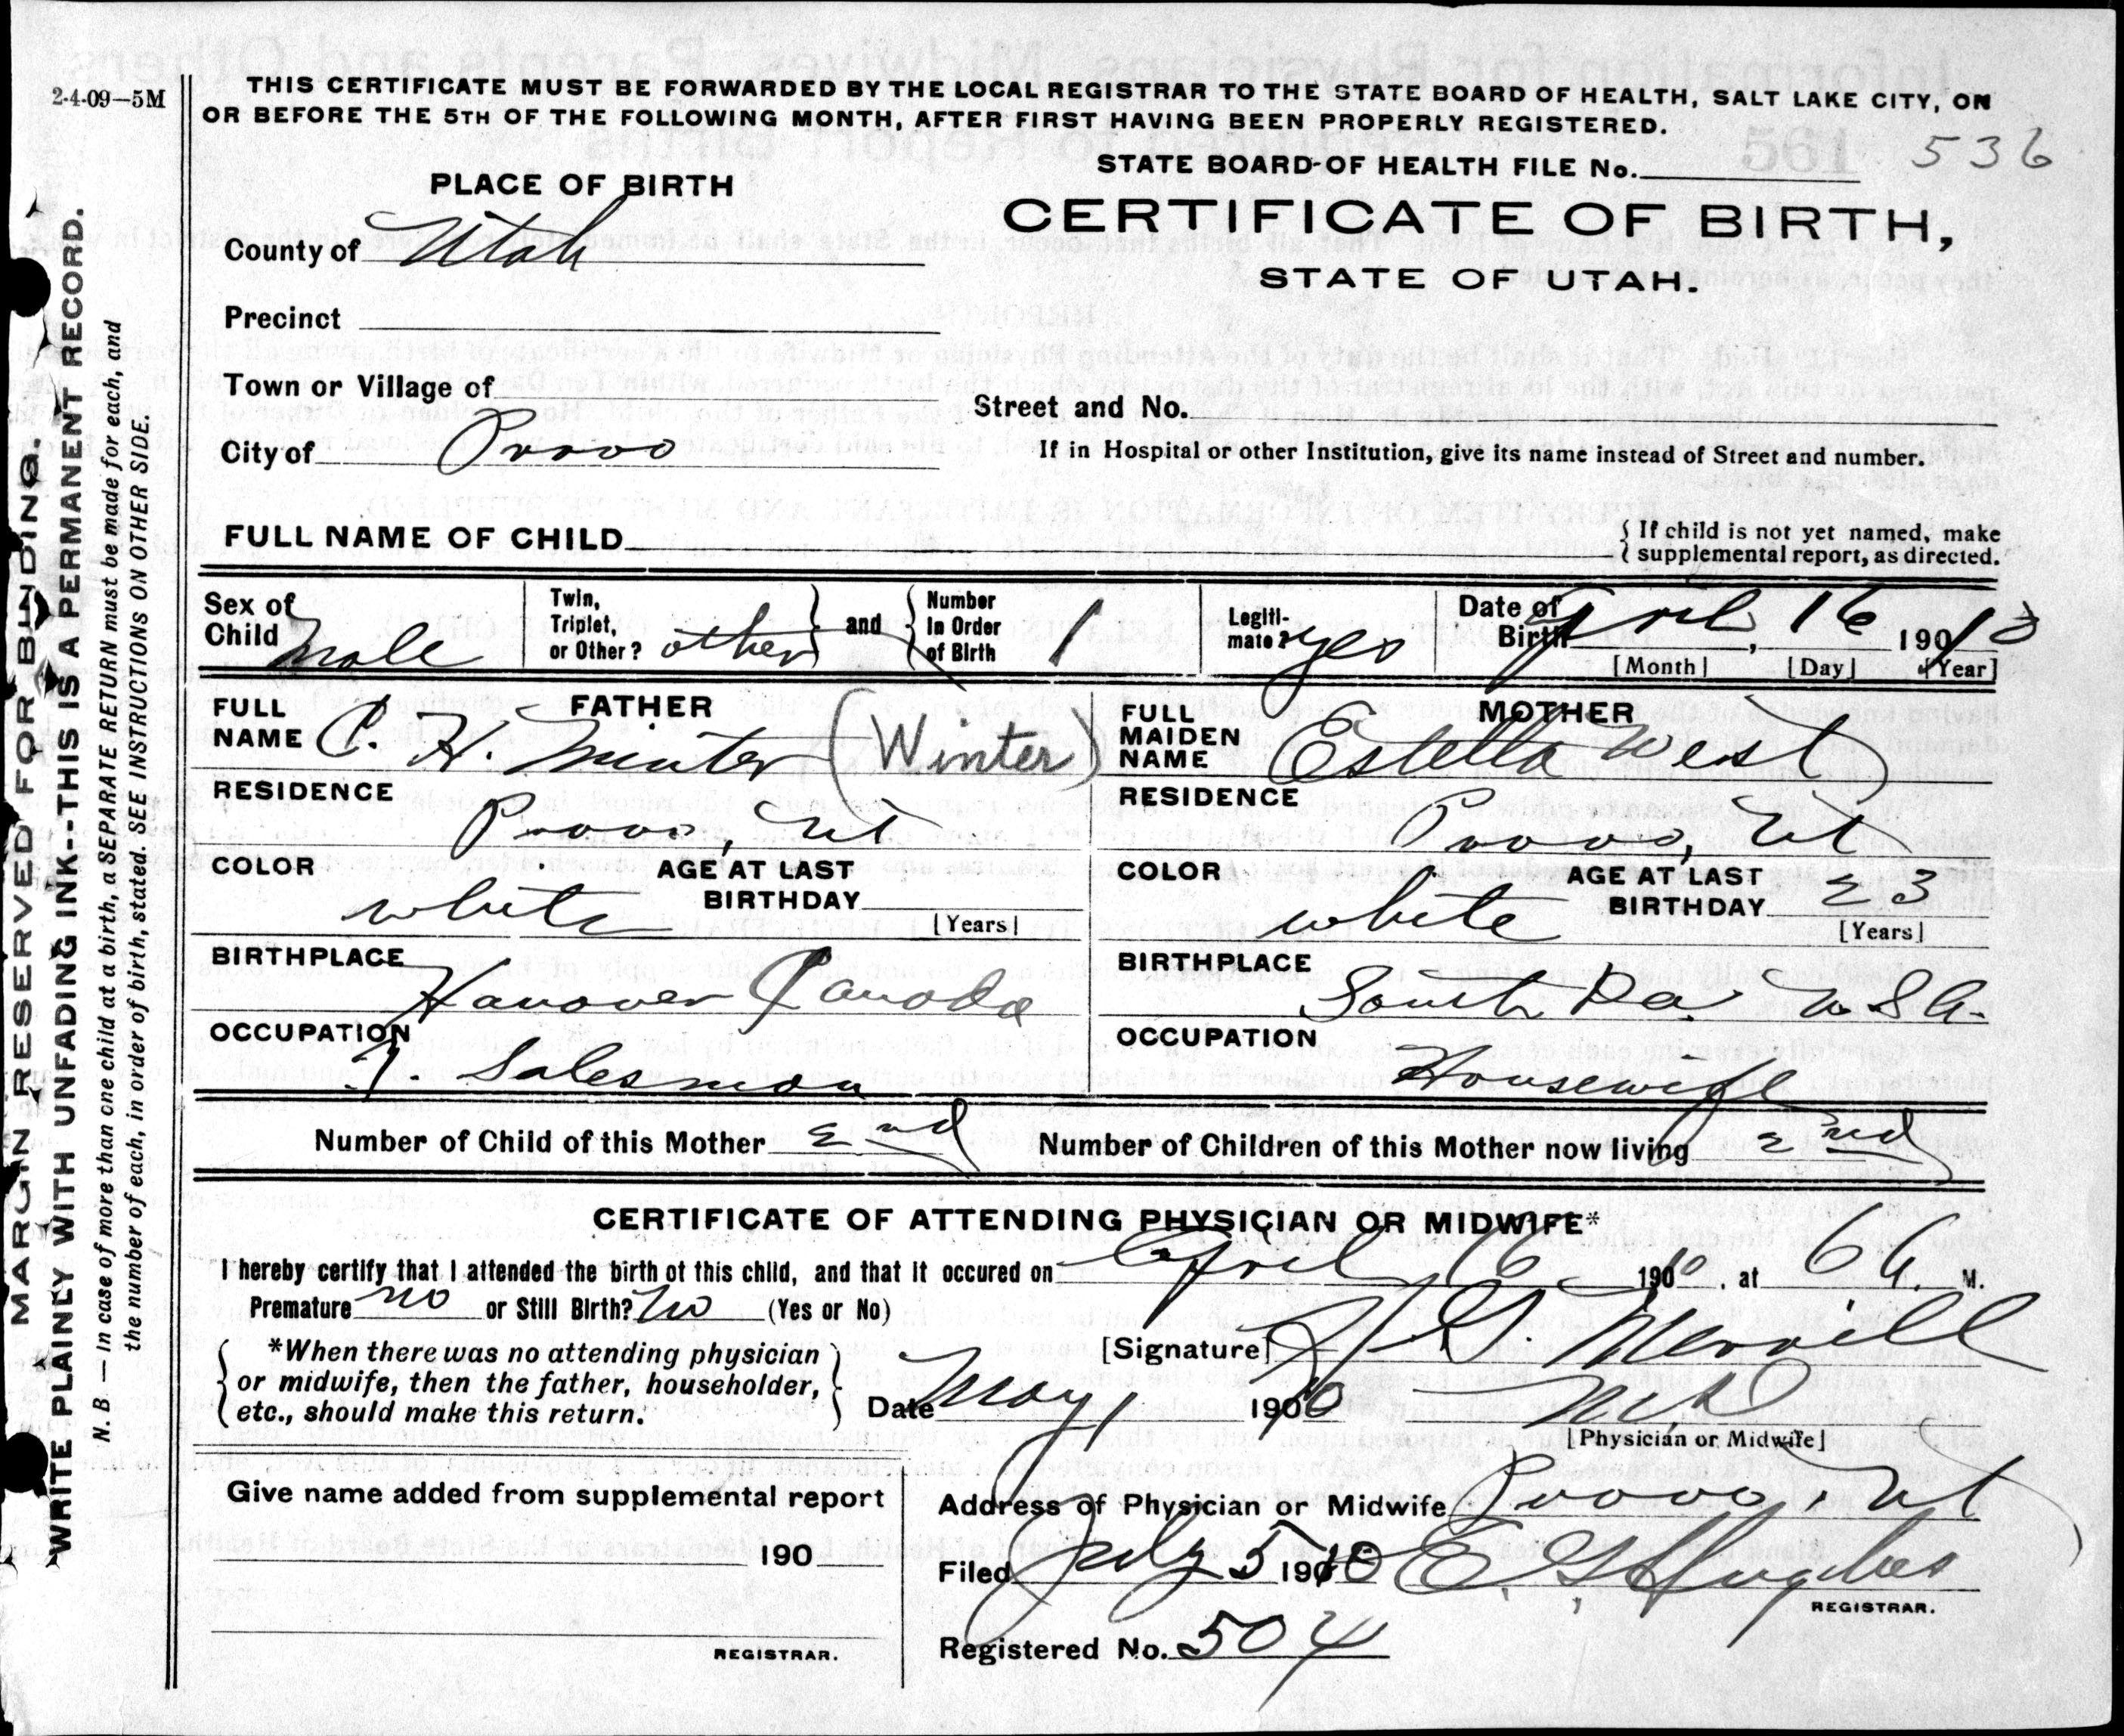 2-4-09—5M
THIS CERTIFICATE MUST BE FORWARDED BY THE LOCAL REGISTRAR TO THE STATE BOARD OF HEALTH, SALT LAKE CITY, ON
OR BEFORE THE 5TH OF THE FOLLOWING MONTH, AFTER FIRST HAVING BEEN PROPERLY REGISTERED.
STATE BOARD OF HEALTH FILE No. 536
PLACE OF BIRTH
CERTIFICATE OF BIRTH,
STATE OF UTAH.
County of Utah
Precinct
Town or Village of
Street and No.
City of Provo
If in Hospital or other Institution, give its name instead of Street and number.
FULL NAME OF CHILD
{ If child is not yet named, make
{ supplemental report, as directed.
Sex of Child Male
Twin, Triplet, or Other? other } and { Number In Order of Birth 1
Legitimate? yes
Date of Birth April, 16 190 10
[Month] [Day] [Year]
FATHER
FULL NAME C. H. Minter (Winter)
MOTHER
FULL MAIDEN NAME Estella West
RESIDENCE Provo, Ut
RESIDENCE Provo, Ut
COLOR white AGE AT LAST BIRTHDAY [Years]
COLOR white AGE AT LAST BIRTHDAY 23 [Years]
BIRTHPLACE Hanover Canada
BIRTHPLACE South Da. U.S.A.
OCCUPATION T. Salesman
OCCUPATION Housewife
Number of Child of this Mother 2nd Number of Children of this Mother now living 2nd
CERTIFICATE OF ATTENDING PHYSICIAN OR MIDWIFE*
I hereby certify that I attended the birth of this child, and that it occured on April 16 1910, at 6 A. M.
Premature no or Still Birth? No (Yes or No)
*When there was no attending physician
or midwife, then the father, householder,
etc., should make this return.
[Signature] H. G. Merrill
Date May 1 1910 M.D
[Physician or Midwife]
Give name added from supplemental report
190
REGISTRAR.
Address of Physician or Midwife Provo, Ut
Filed July 5 1910 E. G. Hughes
REGISTRAR.
Registered No. 504
MARGIN RESERVED FOR BINDING.
WRITE PLAINLY WITH UNFADING INK--THIS IS A PERMANENT RECORD.
N. B — In case of more than one child at a birth, a SEPARATE RETURN must be made for each, and
the number of each, in order of birth, stated. SEE INSTRUCTIONS ON OTHER SIDE.